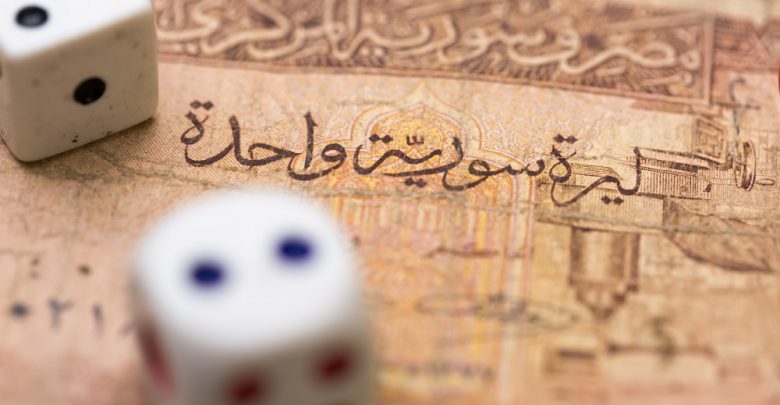 مصرف سورية المركزي
ليرة سورية واحدة